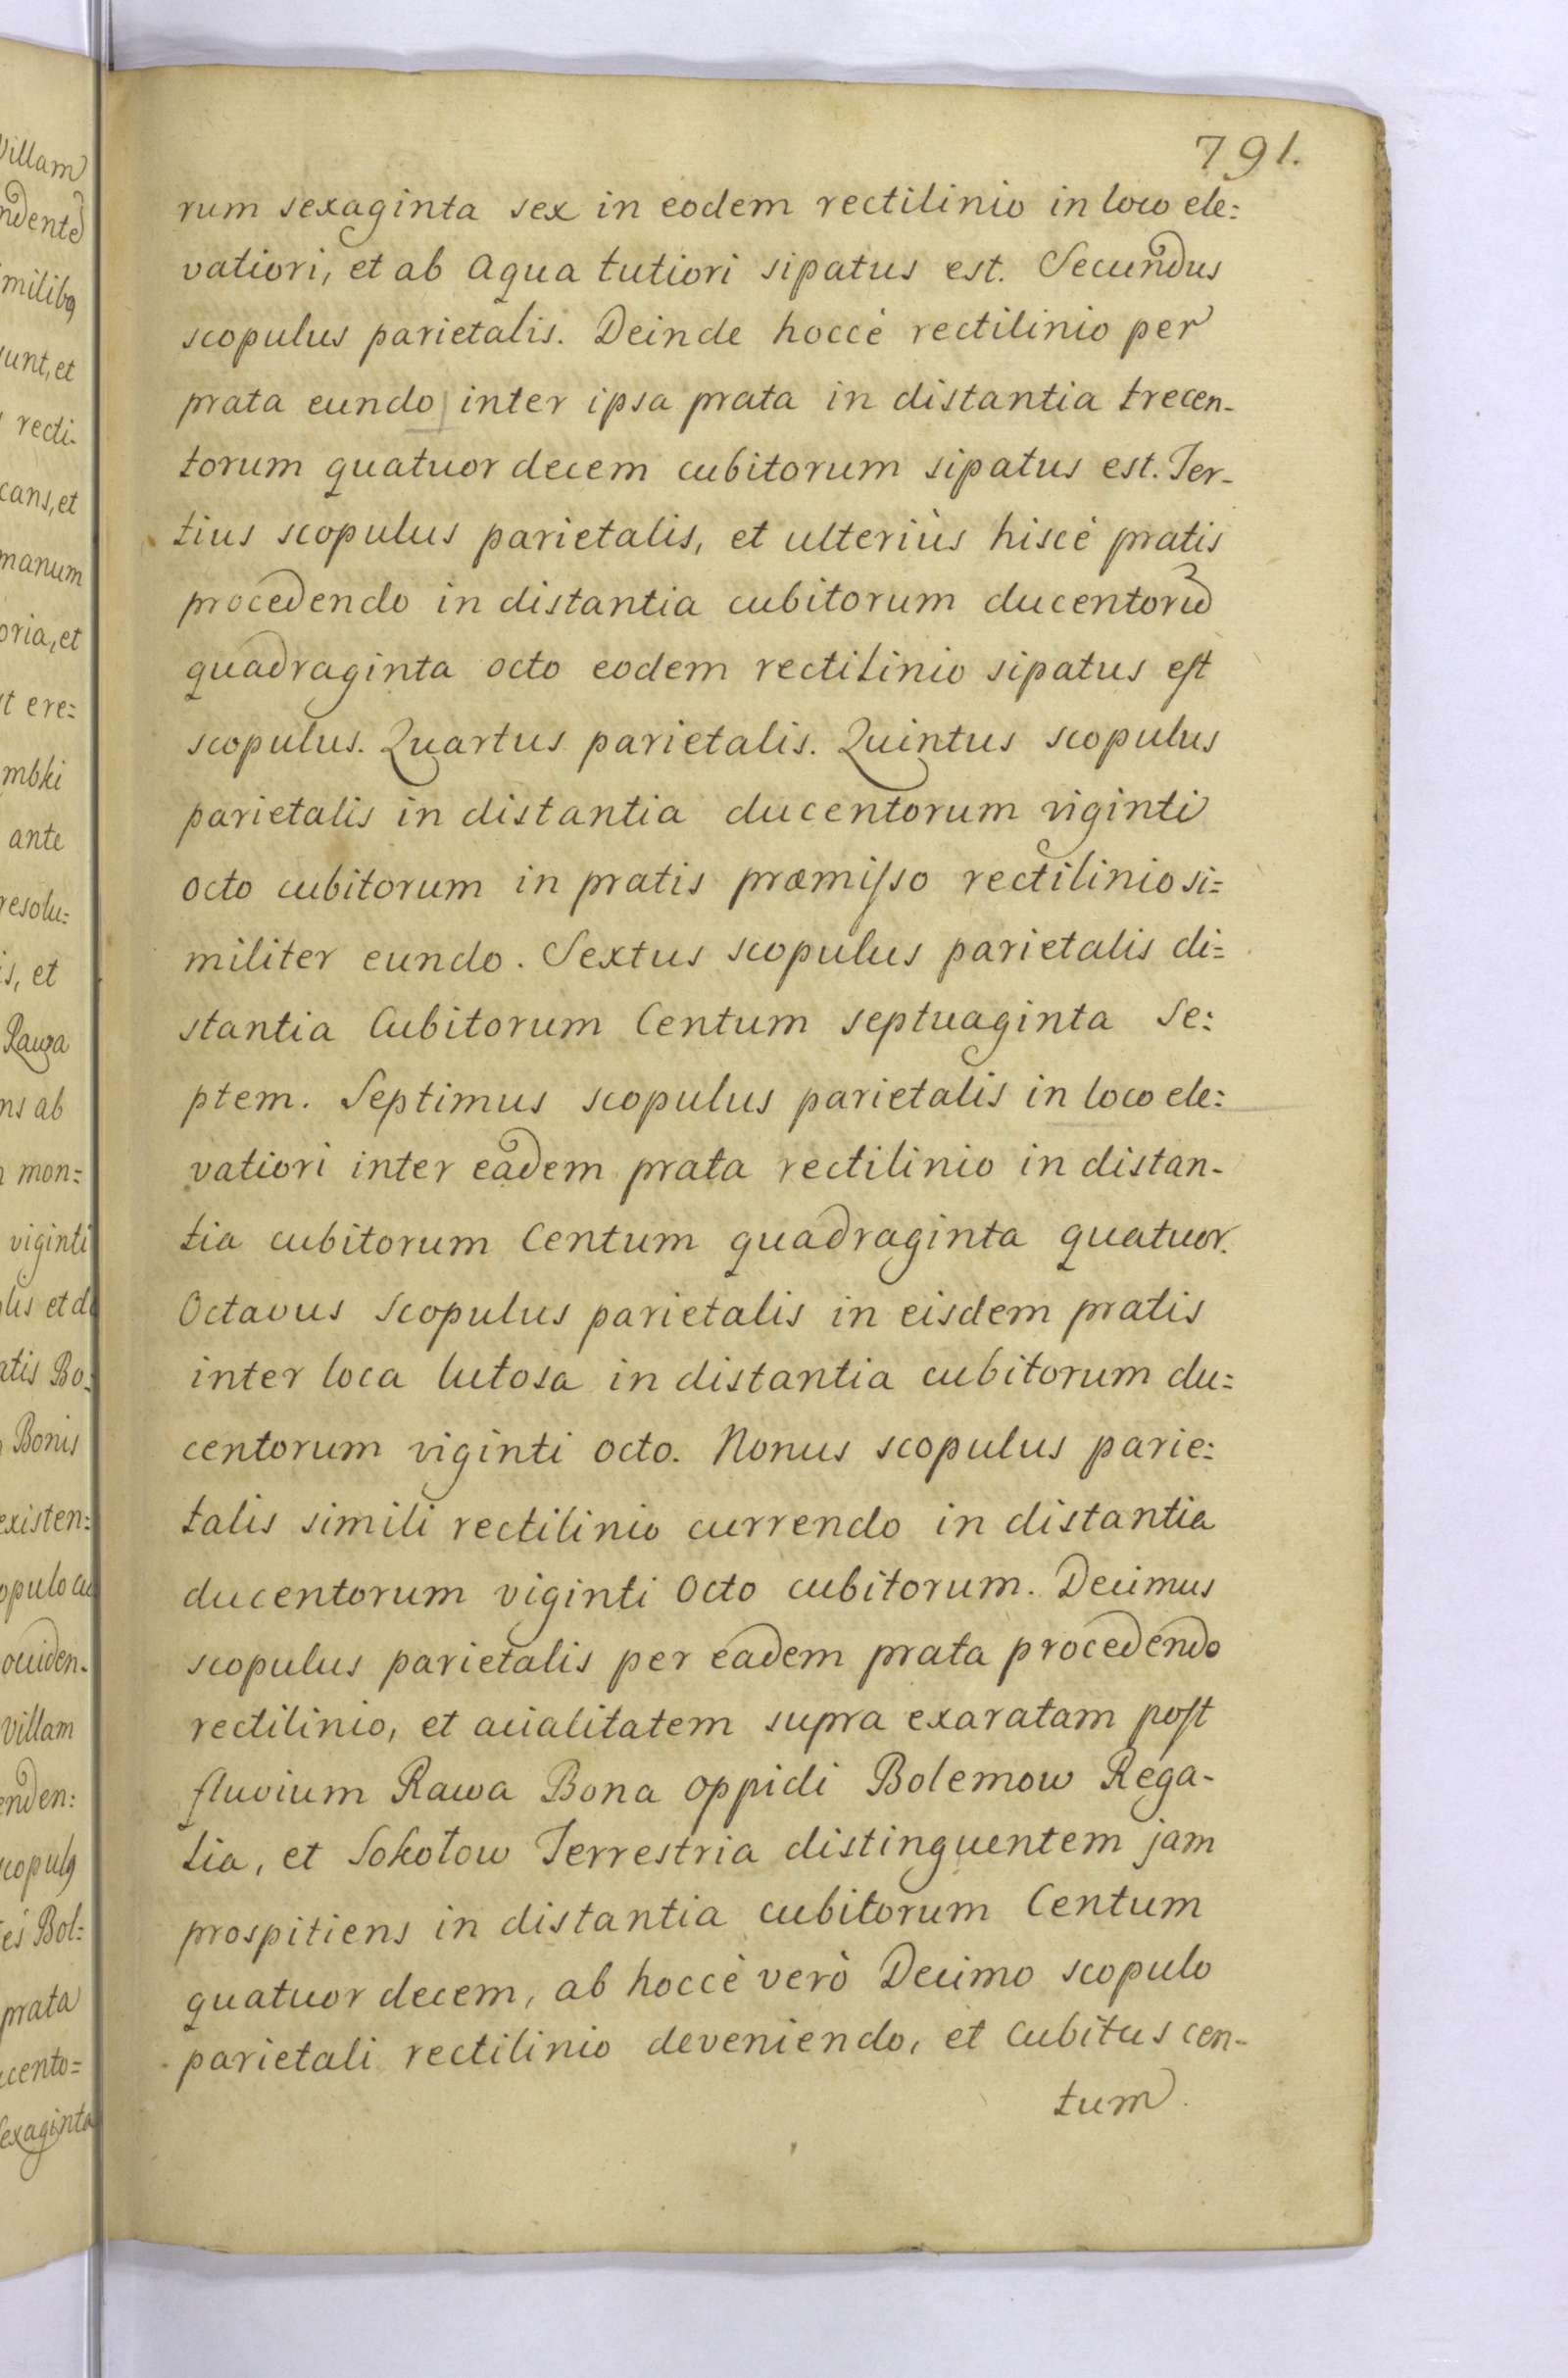 791.
rum sexaginta sex in eodem rectilinio in loco ele:
vatiori, et ab aqua tutiori sipatus est. Secundus
scopulus parietalis. Deinde hoccè rectilinio per
prata eundo inter ipsa prata in distantia trecen-
torum quatuor decem cubitorum sipatus est. Ter-
tius scopulus parietalis, et ulteriùs hiscè pratis
procedendo in distantia cubitorum ducentorũ
quadraginta octo eodem rectilinio sipatus est
scopulus. Quartus parietalis. Quintus scopulus
parietalis in distantia ducentorum viginti
octo cubitorum in pratis præmisso rectilinio si=
militer eundo. Sextus scopulus parietalis di=
stantia Cubitorum Centum septuaginta Se:
ptem. Septimus scopulus parietalis in loco ele:
vatiori inter eadem prata rectilinio in distan-
tia cubitorum Centum quadraginta quatuor.
Octavus Scopulus parietalis in eisdem pratis
inter loca lutosa in distantia cubitorum du=
centorum viginti octo. Nonus scopulus parie:
talis simili rectilinio currendo in distantia
ducentorum viginti Octo cubitorum. Decimus
scopulus parietalis per eadem prata procedendo
rectilinio, et acialitatem supra exaratam post
fluvium Rawa Bona oppidi Bolemow Rega-
lia, et Sokołow Terrestria distinguentem jam
prospitiens in distantia cubitorum Centum
quatuor decem, ab hoccè verò Decimo scopulo
parietali rectilinio deveniendo, et Cubitus cen-
tum
villam
milibq
sunt, et
recti-
cans, et
manum
oria, et
t ere:
mbki
ante
resolu:
is, et
Rawa
ns ab
mon:
viginti
lis et d
atis Bo:
Bonis
existen:
opulo cu
villam
enden:
copulq
es Bol:
prata
cento=
sexaginta